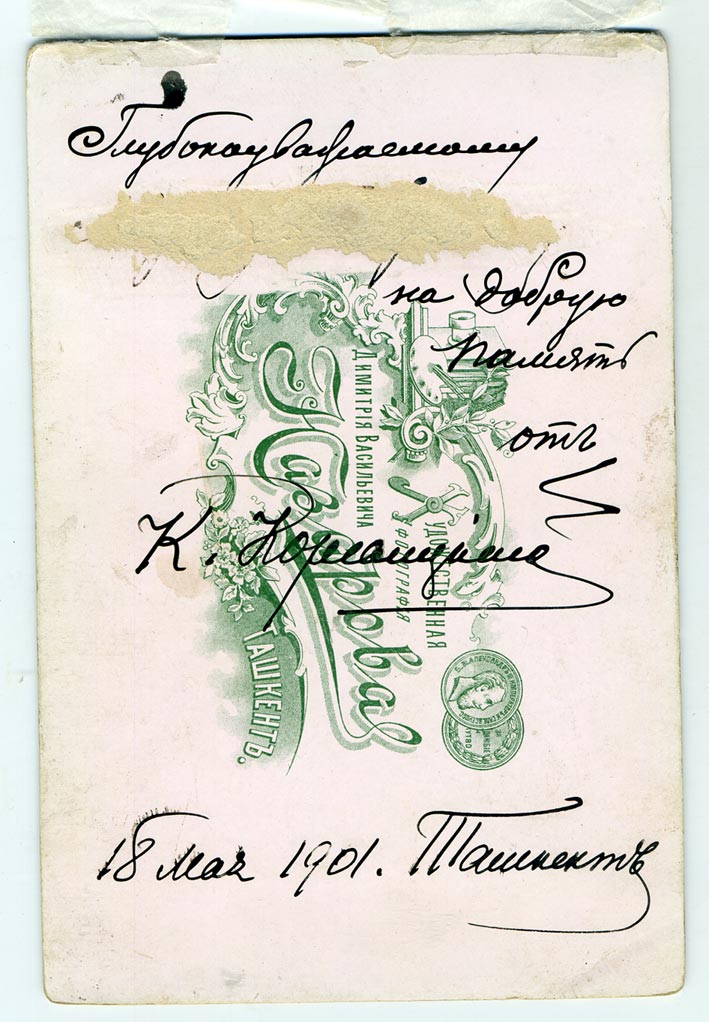 Глубокоуважаемому
на добрую
память
отъ
К.
18 Мая 1901. Ташкентъ
Художественная
фотографія
Димитрія Васильевича
Назарова
Ташкентъ.